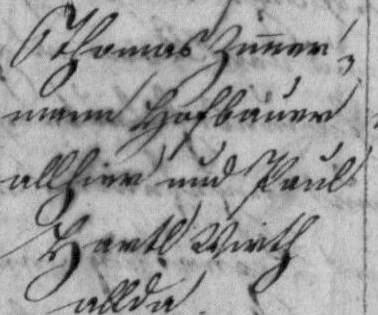 Thomas Zim̄er=
mann Hofbauer
allhier und Paul
Hartl Wirth
allda.